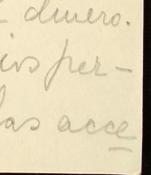 dinero.
ios per-
las acce